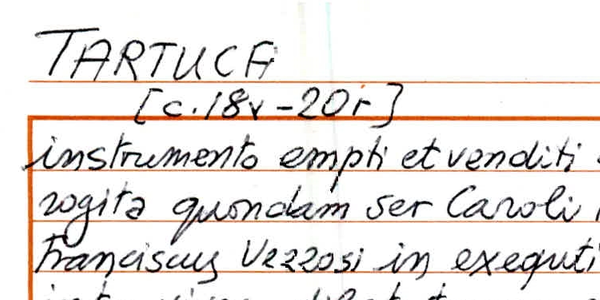 TARTUCA
[c.18v-20r]
instrumento empti et venditi
rogita quondam ser Caroli
Franciscus Vezzosi in exequti